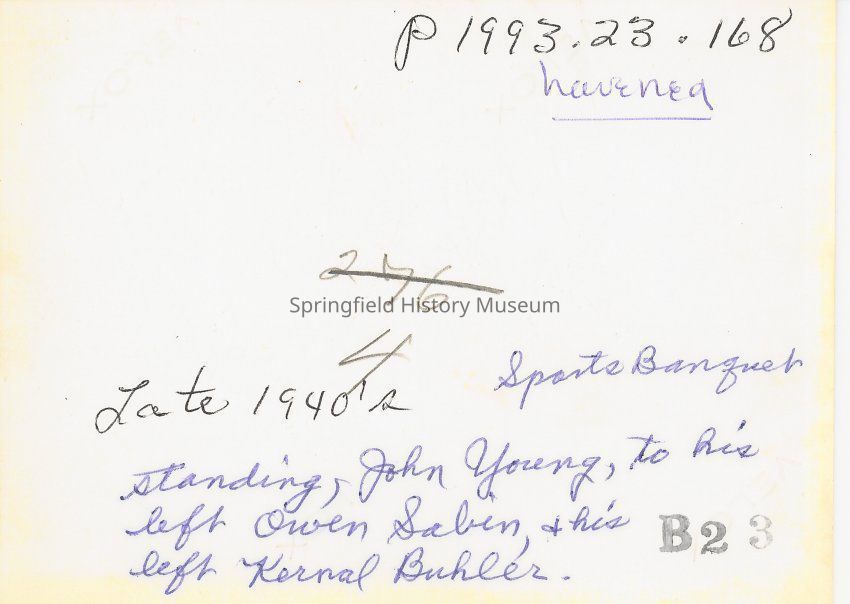 P 1993.23.168
276
Springfield History Museum
4
Sports Banquet
Late 1940's
standing, John Young, to his
left Owen Sabin, & his
left Kernal Buhler.
B23